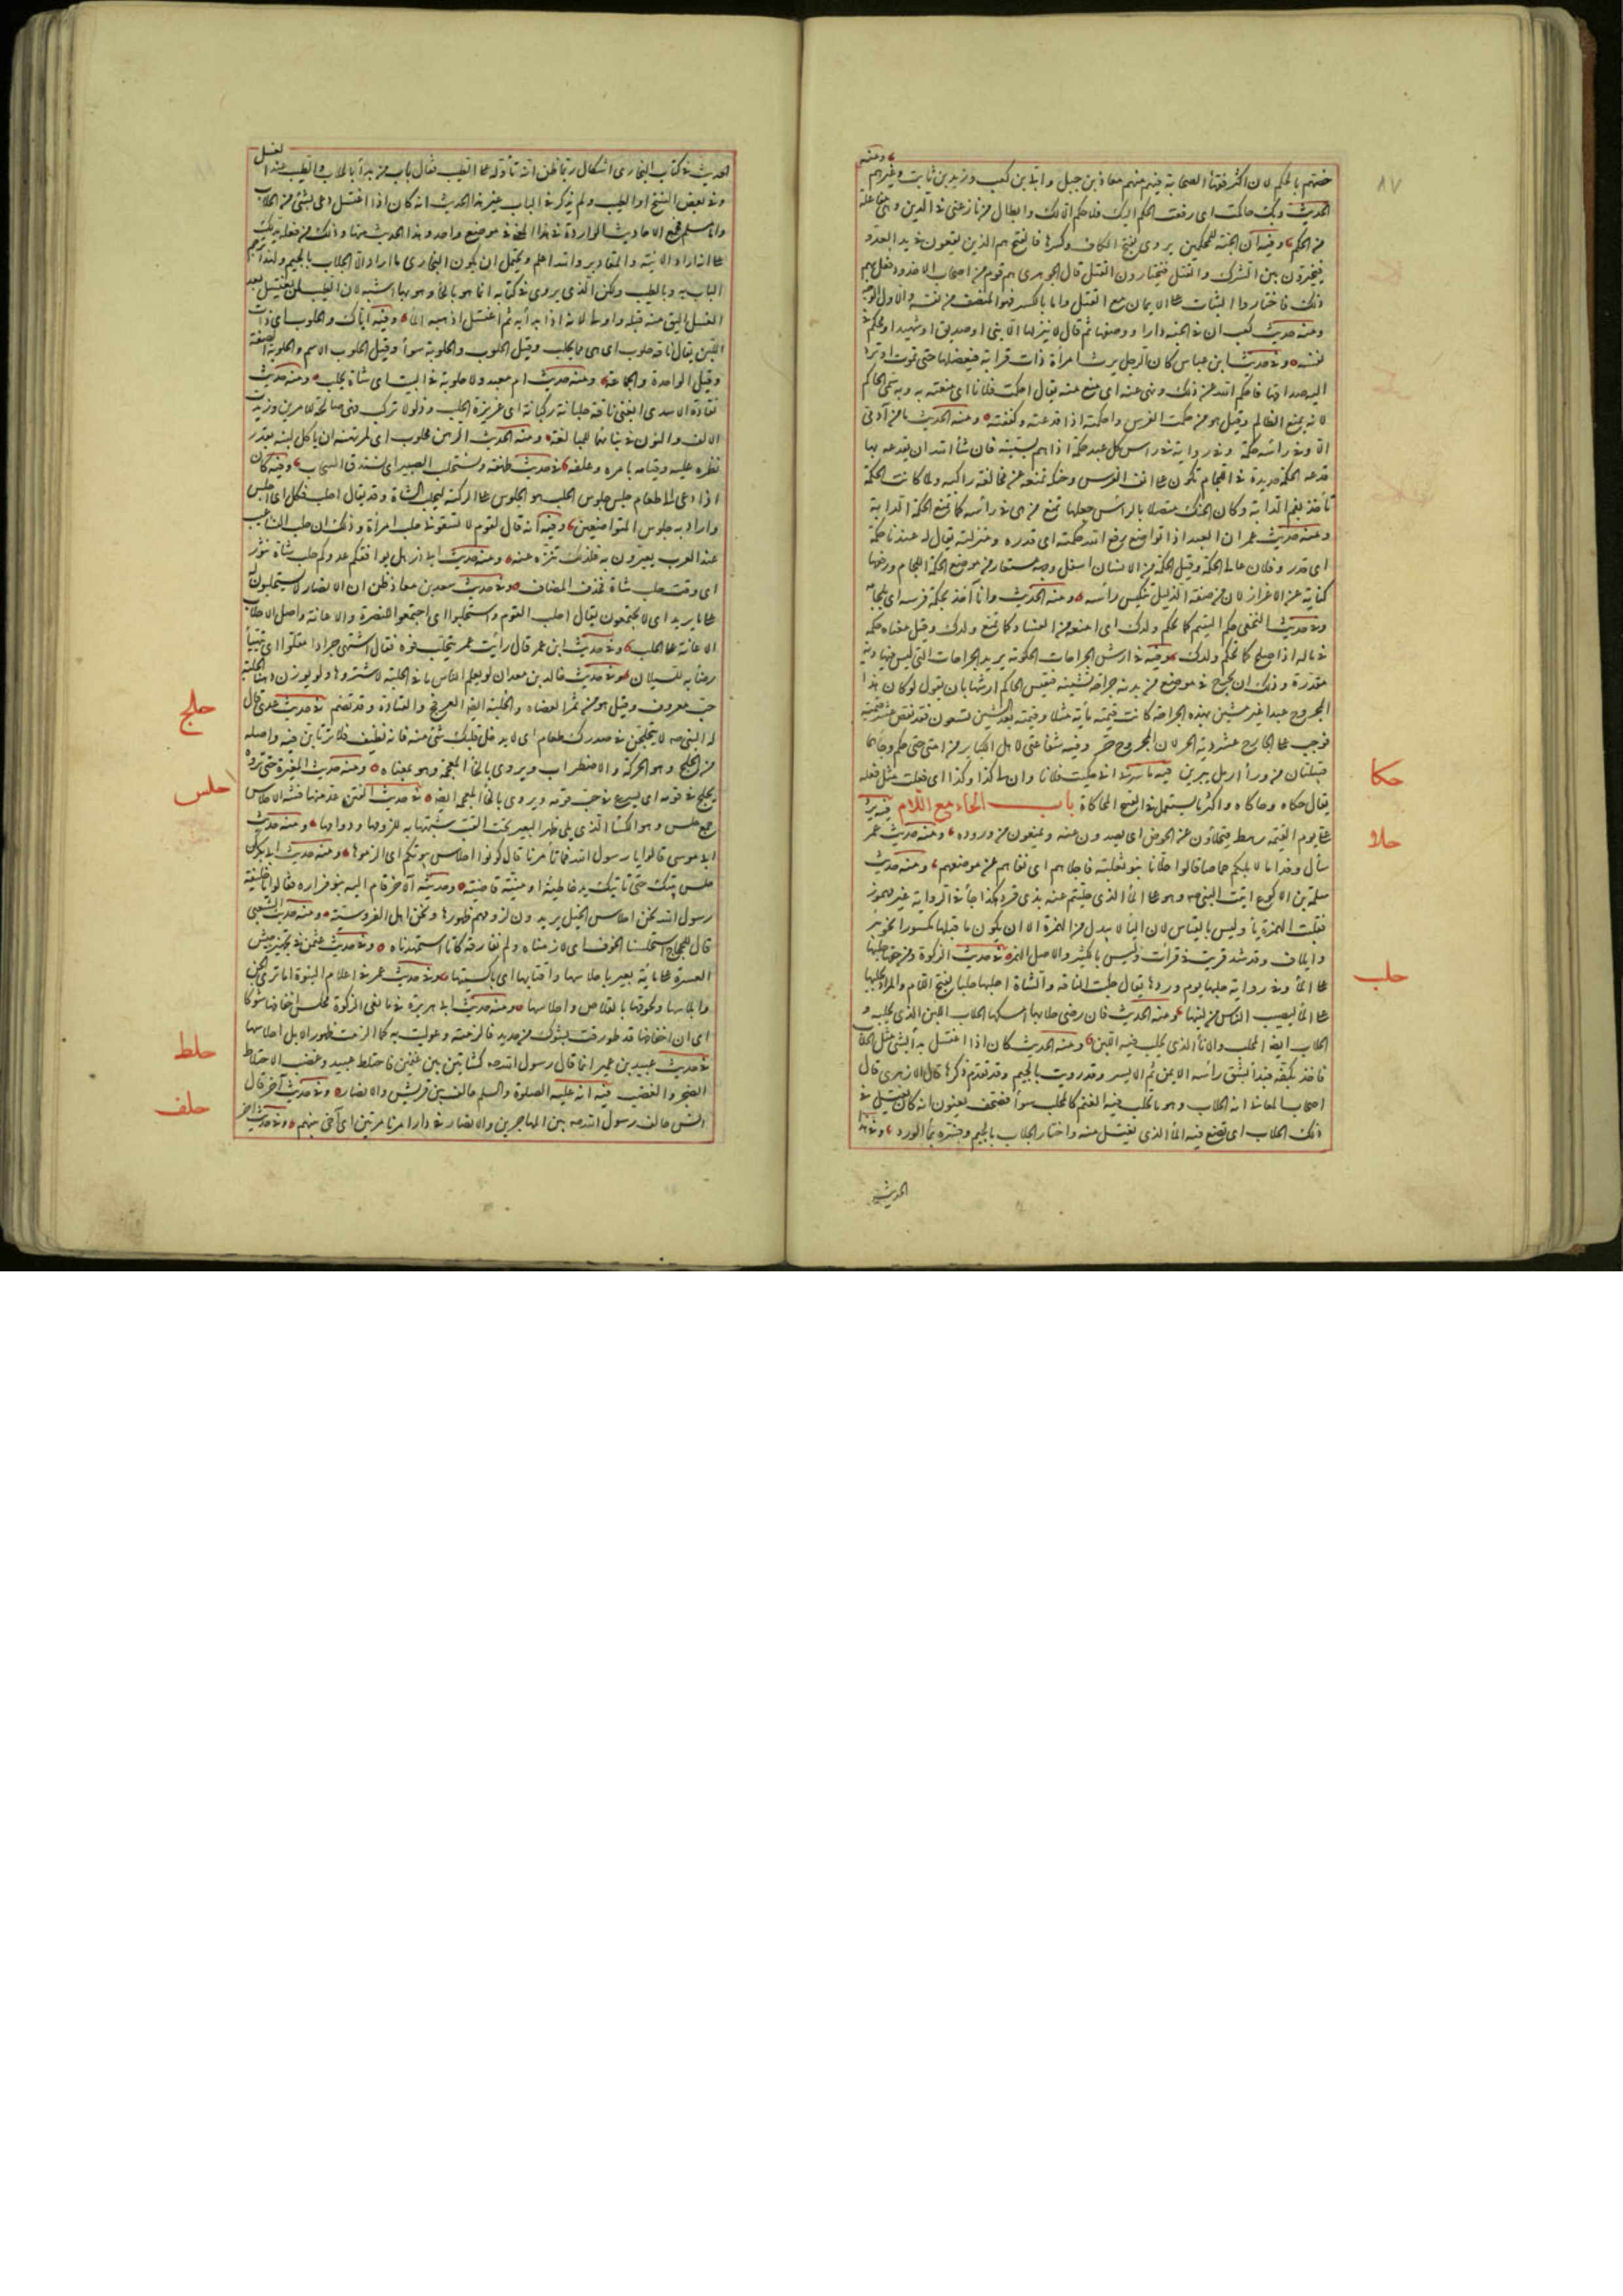 ٨٧
ومنه
خصهم بالحكم لان اكثر فقهاء الصحابة فيهم منهم معاذ بن جبل وابي بن كعب وزيد بن ثابت وغيرهم
الحديث وبك حاكمت اى رفعت الحكم اليك فلا حكم الا لك وابطال من نازعنى فى الدين وهى مفاعلة
من الحكم وفيه ان الجنة للمحكمين يروى بفتح الكاف وكسرها فالفتح هم الذين يقعون فى يد العدو
فيخيرون بين الشرك والقتل فيختارون القتل قال الجوهرى هم قوم من اصحاب الاخدود فعل بهم
ذلك فاختاروا الثبات على الايمان مع القتل واما بالكسر فهو المنصف من نفسه والاول الوجه
ومنه حديث كعب ان فى الجنة دارا ووصفها ثم قال لا ينزلها الا نبى او صديق او شهيد او محكم فى
نفسه وفى حديث ابن عباس كان الرجل يرث امرأة ذات قرابة فيعضلها حتى تموت او ترد
اليه صداقها فاحكم الله عن ذلك ونهى عنه اى منع منه يقال احكمت فلانا اى منعته به وبه سمى الحاكم
لانه يمنع الظالم وقيل هو من حكمت الفرس واحكمته اذا قدعته وكففته ومنه الحديث ما من آدمى
الا وفى رأسه حكمة وفى رواية فى رأس كل عبد حكمة اذا هم بسيئة فان شاء الله ان يقدعه بها
قدعه الحكمة حديدة فى اللجام تكون على انف الفرس وحنكه تمنعه عن مخالفة راكبه ولما كانت الحكمة
تأخذ بفم الدابة وكان الحنك متصلا بالرأس جعلها تمنع من هى فى رأسه كما تمنع الحكمة الدابة
ومنه حديث عمر ان العبد اذا تواضع رفع الله حكمته اى قدره ومنزلته يقال له عندنا حكمة
اى قدر وفلان عالى الحكمة وقيل الحكمة من الانسان اسفل وجهه مستعار من موضع حكمة اللجام ورفعها
كناية عن الاعزاز لان من صفة الذليل تنكيس رأسه ومنه الحديث وانا آخذ بحكمة فرسه اى بلجامه
وفى حديث النخعى حكم اليتيم كما تحكم ولدك اى امنعه من الفساد كما تمنع ولدك وقيل معناه حكمه
فى ماله اذا صلح كما تحكم ولدك وفيه فى ارش الجراحات الحكومة يريد الجراحات التى ليس فيها دية
مقدرة وذلك ان يجرح فى موضع من بدنه جراحة تشينه فيقيس الحاكم ارشها بان يقول لو كان هذا
المجروح عبدا غير مشين بهذه الجراحة كانت قيمته مأية مثلا وقيمته بعد الشين تسعون فقد نقص عشر قيمته
فوجب على الجارح عشر دية الحر لان المجروح حر وفيه شفاعتى لاهل الكبائر من امتى حتى حكم وحاء هما
حكا
قبيلتان من وراء رمل يبرين فيه ما سرنى انى حكيت فلانا وان لى كذا وكذا اى فعلت مثل فعله
يقال حكاه وحاكاه واكثر ما يستعمل فى القبيح المحاكاة باب الحاء مع اللام فيه يرد
حلا
على يوم القيمة رهط فيحلأون عن الحوض اى يصدون عنه ويمنعون من وروده ومنه حديث عمر
سأل وفدا ما لابلكم خماصا قالوا حلأنا بنو ثعلبة فاجلاهم اى نفاهم عن موضعهم ومنه حديث
سلمة بن الاكوع اتيت النبى صم وهو على الماء الذى حليتهم عنه بذى قرد هكذا جاء فى الرواية غير مهموز
فقلبت الهمزة ياء وليس بالقياس لان الياء لا تبدل من الهمزة الا ان يكون ما قبلها مكسورا نحو بير
وايلاف وقد شذ قريت فى قرأت وليس بالكثير والاصل الهمز فى حديث الزكوة ومن حقها حلبها
حلب
على الماء وفى رواية حلبها يوم وردها يقال حلبت الناقة والشاة احلبها حلبا بفتح اللام والمراد يحلبها
على الماء ليصيب الناس من لبنها ومنه الحديث فان رضى حلابها امسكها الحلاب اللبن الذى يحلبه و
الحلاب ايضا المحلب والاناء الذى يحلب فيه اللبن ومنه الحديث كان اذا اغتسل بدأ بشئ مثل الحلاب
فاخذ بكفه فبدأ بشق رأسه الايمن ثم الايسر وقد رويت بالجيم وقد تقدم ذكرها قال الازهرى قال
اصحاب المعانى انه الحلاب وهو ما تحلب فيه الغنم كالمحلب سواء فصحف يعنون انه كان يغتسل فى
ذلك الحلاب اى يضع فيه الماء الذى يغتسل منه واختار الجلاب بالجيم وفسره بماء الورد وفى هذا
الحديث
الحديث فى كتاب البخارى اشكال ربما ظن انه تأوله على الطيب فقال باب من بدأ بالحلاب والطيب عند الغسل
وفى بعض النسخ او الطيب ولم يذكر فى الباب غير هذا الحديث انه كان اذا اغتسل دعى بشئ من الحلاب
واما مسلم فجمع الاحاديث الواردة فى هذا المعنى فى موضع واحد وهذا الحديث منها وذلك من فعله يدلك
على انه اراد الانية والمقادير والله اعلم ويحتمل ان يكون البخارى ما اراد الا الجلاب بالجيم ولهذا ترجم
الباب به وبالطيب ولكن الذى يروى فى كتابه انما هو بالحاء وهو بها اشبه لان الطيب لمن يغتسل بعد
الغسل اليق منه قبله واولى لانه اذا بدأ به ثم اغتسل اذهبه الماء وفيه اياك والحلوب اى ذات
اللبن يقال ناقة حلوب اى هى مما يحلب وقيل الحلوب والحلوبة سواء وقيل الحلوب الاسم والحلوبة الصفة
وقيل الواحدة والجماعة ومنه حديث ام معبد ولا حلوبة فى البيت اى شاة تحلب ومنه حديث
نقادة الاسدى ابغنى ناقة حلبانة ركبانة اى غزيرة تحلب وذلولا تركب فهى صالحة للامرين وزيدت
الالف والنون فى بنائهما للمبالغة ومنه الحديث الرهن محلوب اى لمرتهنه ان يأكل لبنه بقدر
نظره عليه وقيامه بامره وعلفه فى حديث طهفة ونستحلب الصبير اى نستدر السحاب وفيه كان
اذا دعى الى طعام جلس جلوس الحلب هو الجلوس على الركبة ليحلب الشاة وقد يقال احلب فكل اى اجلس
واراد به جلوس المتواضعين وفيه انه قال لقوم لا تسقونى حلب امرأة وذلك ان حلب النساء عيب
عند العرب يعيرون به فلذلك تنزه عنه ومنه حديث ابى ذر هل يوافقكم عدوكم حلب شاة نثور
اى وقت حلب شاة فحذف المضاف وفى حديث سعد بن معاذ ظن ان الانصار لا يستحلبون له
على ما يريد اى لا يجتمعون يقال احلب القوم واستحلبوا اى اجتمعوا للنصرة والاعانة واصل الاحلاب
الاعانة على الحلب وفى حديث ابن عمر قال رأيت عمر يتحلب فوه فقال اشتهى جرادا مقلوا اى يتهيأ
رضابه للسيلان وفى حديث خالد بن معدان لو يعلم الناس ما فى الحلبة لاشتروها ولو بوزنها ذهبا الحلبة
حب معروف وقيل هو من ثمر العضاه والحلبة ايضا العرفج والقتاد وقد تضم فى حديث عدى قال
حلج
له النبى صم لا يتحلجن فى صدرك طعام اى لا يدخل قلبك شئ منه فانه نظيف فلا ترتابن فيه واصله
من الحلج وهو الحركة والاضطراب ويروى بالخاء المعجمة وهو بمعناه ومنه حديث المغيرة حتى تروه
يحلج فى قومه اى يسرع فى حب قومه ويروى بالخاء المعجمة ايضا فى حديث الفتن عد منها فتنة الاحلاس
حلس
جمع حلس وهو الكساء الذى يلى ظهر البعير تحت القتب شبهها به للزومها ودوامها ومنه حديث
ابى موسى قالوا يا رسول الله فما تأمرنا قال كونوا احلاس بيوتكم اى الزموها ومنه حديث ابى بكر كن
حلس بيتك حتى تأتيك يد خاطئة او منية قاضية وحديثه الآخر قام اليه بنو فزارة فقالوا يا خليفة
رسول الله نحن احلاس الخيل يريدون لزومهم ظهورها ونحن اهل الفروسية ومنه حديث الشعبى
قال للحجاج استحلسنا الخوف اى لازمناه ولم نفارقه كانا استمهدناه وفى حديث عثمن فى تجهيز جيش
العسرة على مأية بعير باحلاسها واقتابها اى باكسيتها وفى حديث عمر فى اعلام النبوة الم تر الى الجن
وابلاسها ولحوقها بالقلاص واحلاسها ومنه حديث ابى هريرة فى مانعى الزكوة محلس اخفافها شوكا
اى ان اخفافها قد طورقت بشوك من حديد فالزمته وعوليت به كما الزمت ظهور الابل احلاسها
حلط
فى حديث عبيد بن عمير انما قال رسول الله صم كشاتين بين غنمين فاحتلط عبيد وغضب الاحتلاط
الضجر والغضب فيه انه عليه الصلوة والسلم حالف بين قريش والانصار وفى حديث آخر قال
حلف
انس حالف رسول الله صم بين المهاجرين والانصار فى دارنا مرتين اى آخى بينهم وفى حديث آخر